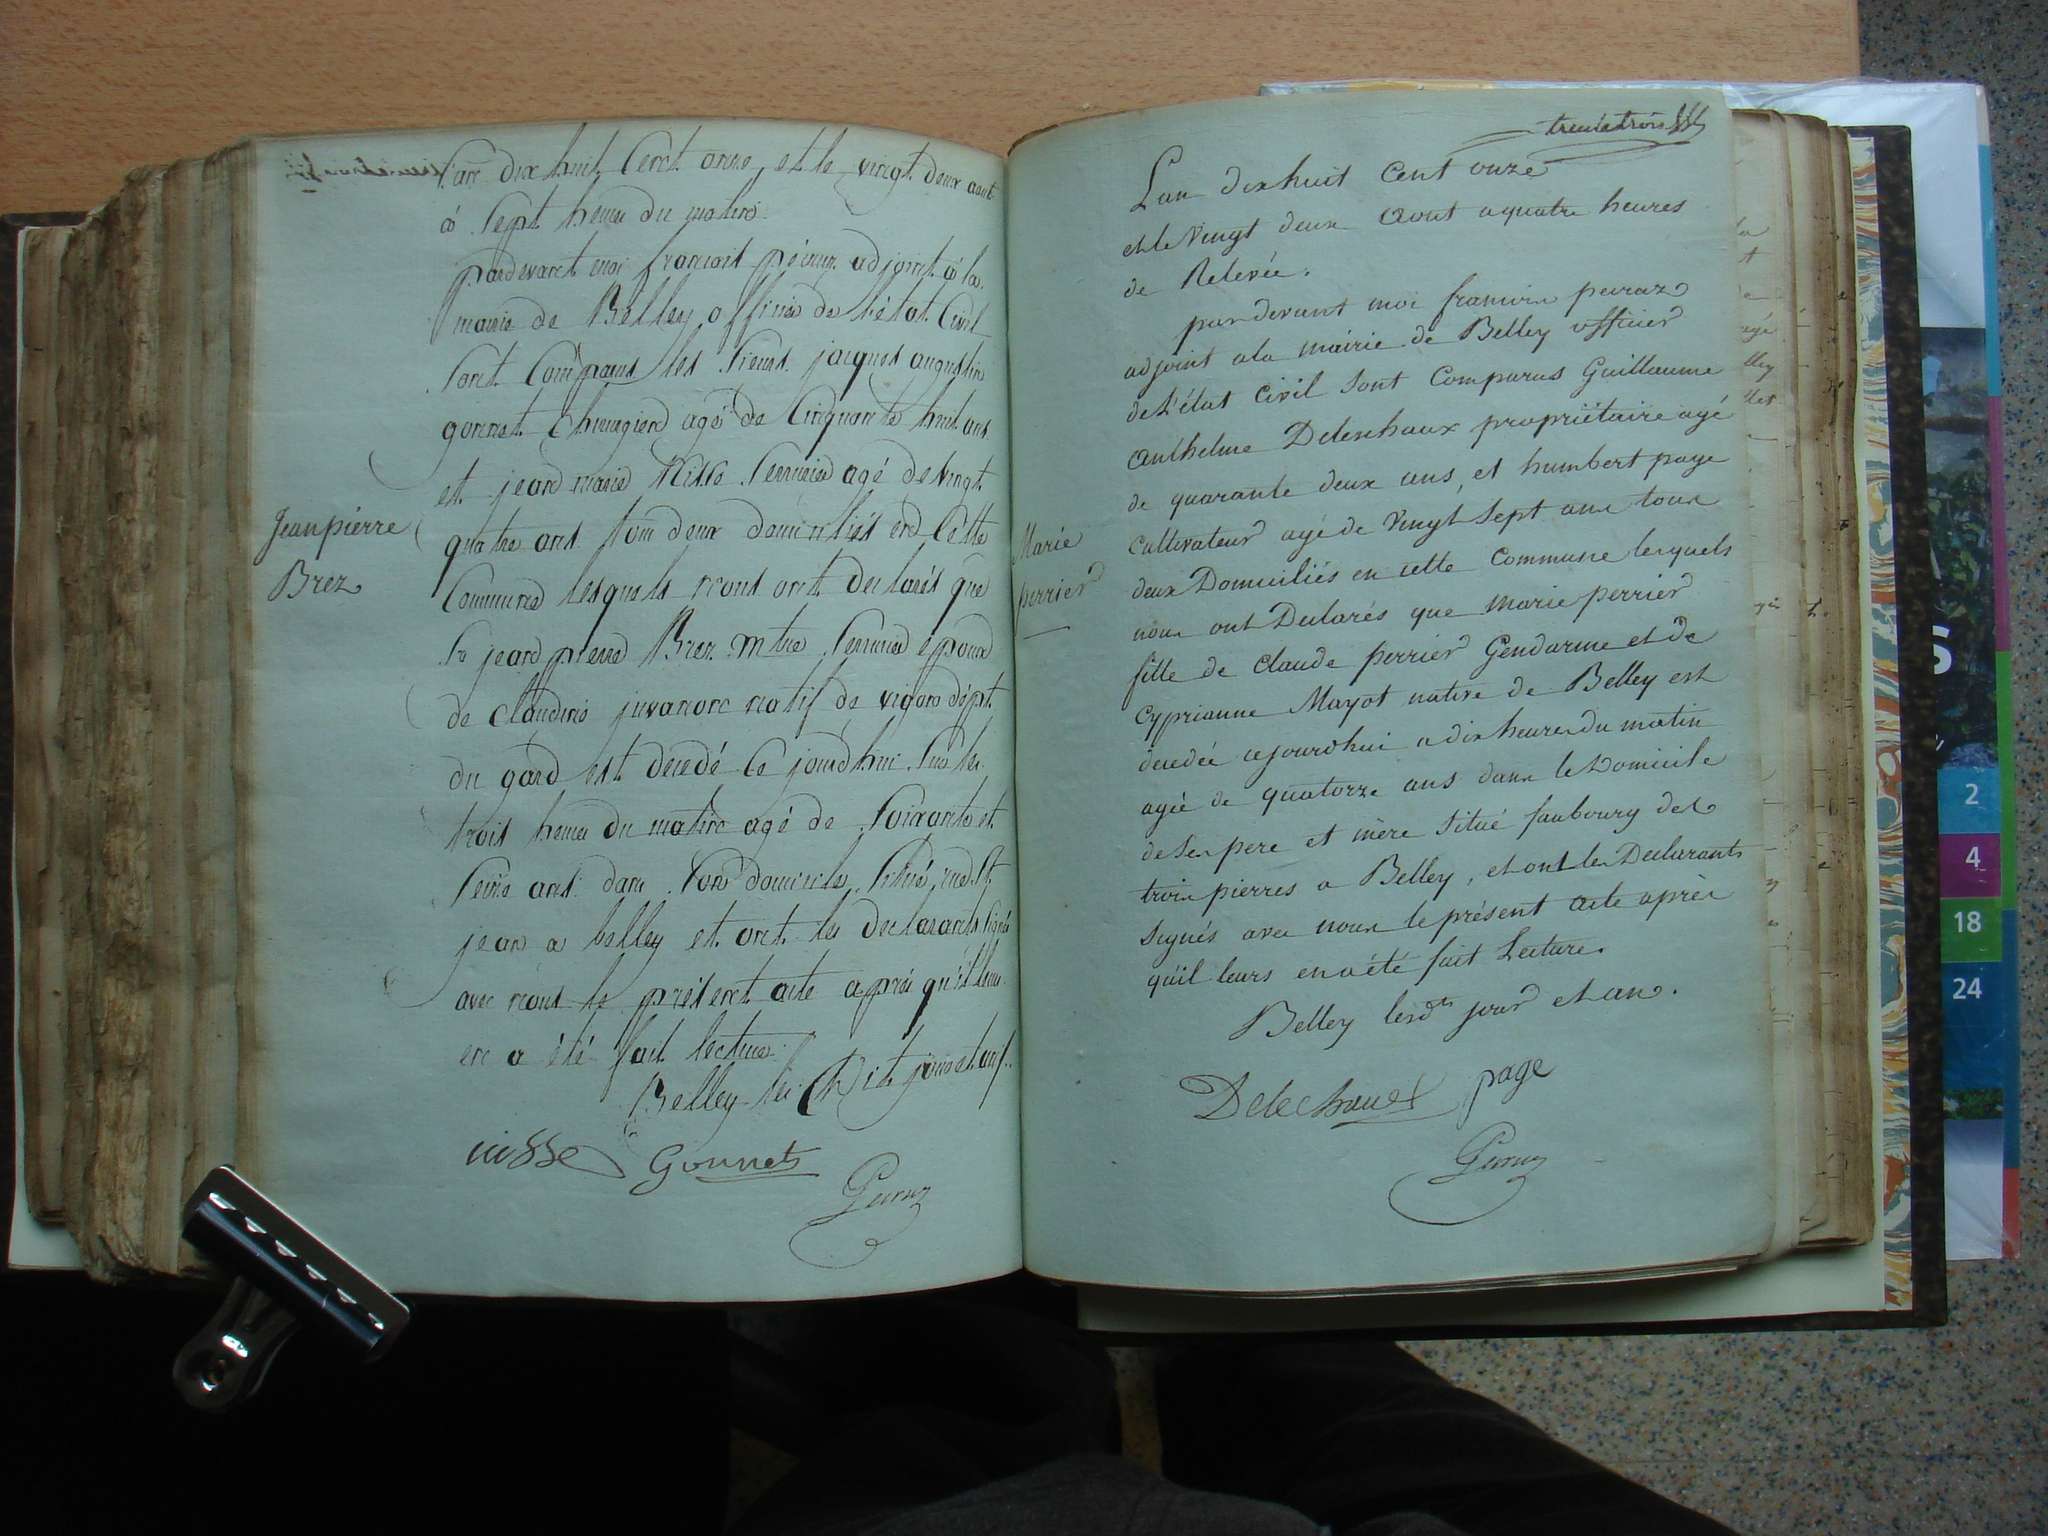 L'an dix huit Cent onze, et le vingt deux aout
à Sept heures du matin
pardevant moi francois peiraz adjoint à la
mairie de Belley officier de l'état Civil
Sont Comparus les Sieurs jacques augustin
gonnet Chirurgien agé de Cinquante huit ans
et jean marie Nisse Serrurier agé de vingt
quatre ans tous deux domiciliés en Cette
Commune lesquels nous ont declarés que
Sr jean pierre Brez mtre Serrurier epoux
de claudine juvanon natif de vigan dépt
du gard est decedé Ce jourd'hui Sur les
trois heures du matin agé de Soixante et
Seize ans dans Son domicile Situé rue St
jean a belley et ont les declarants Signé
avec nous le présent acte après qu'il leur
en a été fait lecture
Belley les dit jour et an
Jean pierre
Brez
nisse Gonnet
Peiraz
trente trois
L'an dix huit Cent onze
et le Vingt deux aout a quatre heures
de Relevée.
par devant moi francois peiraz
adjoint a la mairie de Belley officier
de L'état Civil Sont Comparus Guillaume
anthelme Delechaux propriétaire agé
de quarante deux ans, et humbert page
Cultivateur agé de Vingt Sept ans tous
deux Domiciliés en cette Commune lesquels
nous ont Declarés que marie perrier
fille de Claude perrier Gendarme et de
Cyprianne Mayot native de Belley est
decedée cejourdhui a dix heures du matin
agée de quatorze ans dans le Domicile
de Ses pere et mère Situé faubourg des
trois pierres a Belley, et ont les Declarants
Signés avec nous le présent acte après
qu'il leurs en a été fait Lecture.
Belley lesdts jour et an.
Marie
perrier
Delechaux page
Peiraz
S
2
4
18
24